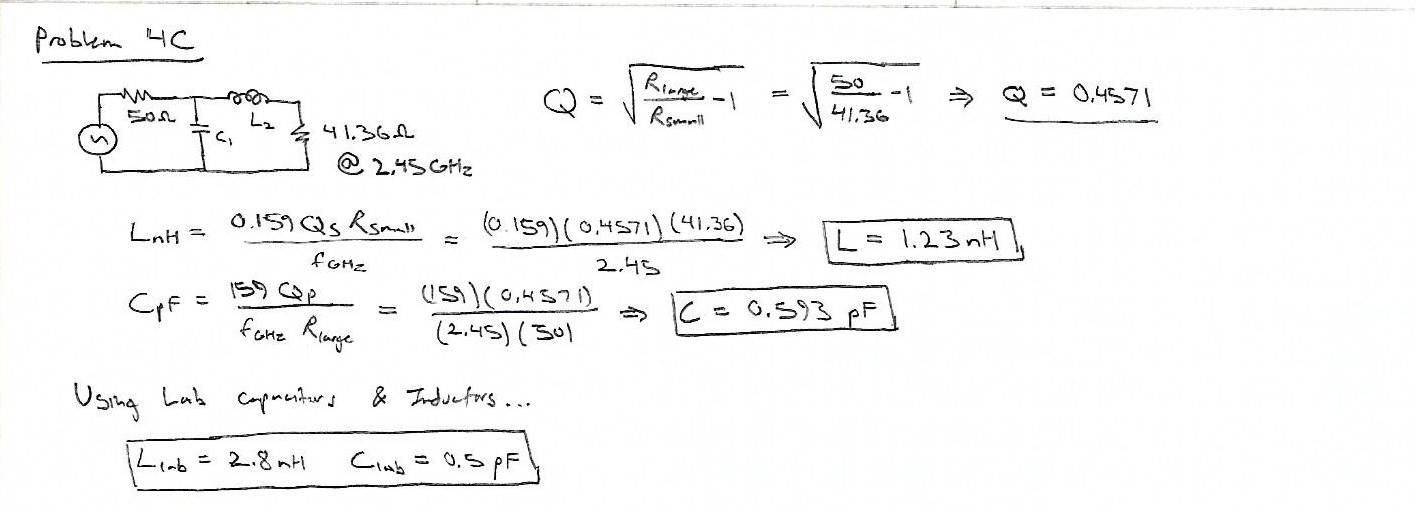 Problem 4C
50Ω C₁ L₂ 41.36Ω
@ 2.45GHz
Q = √(R_large/R_small - 1) = √(50/41.36 - 1) ⇒ Q = 0.4571
L_nH = 0.159 Q_S R_small / f_GHz = (0.159)(0.4571)(41.36) / 2.45 ⇒ L = 1.23nH
C_pF = 159 Q_P / f_GHz R_large = (159)(0.4571) / (2.45)(50) ⇒ C = 0.593 pF
Using Lab capacitors & Inductors...
L_lab = 2.8nH C_lab = 0.5 pF